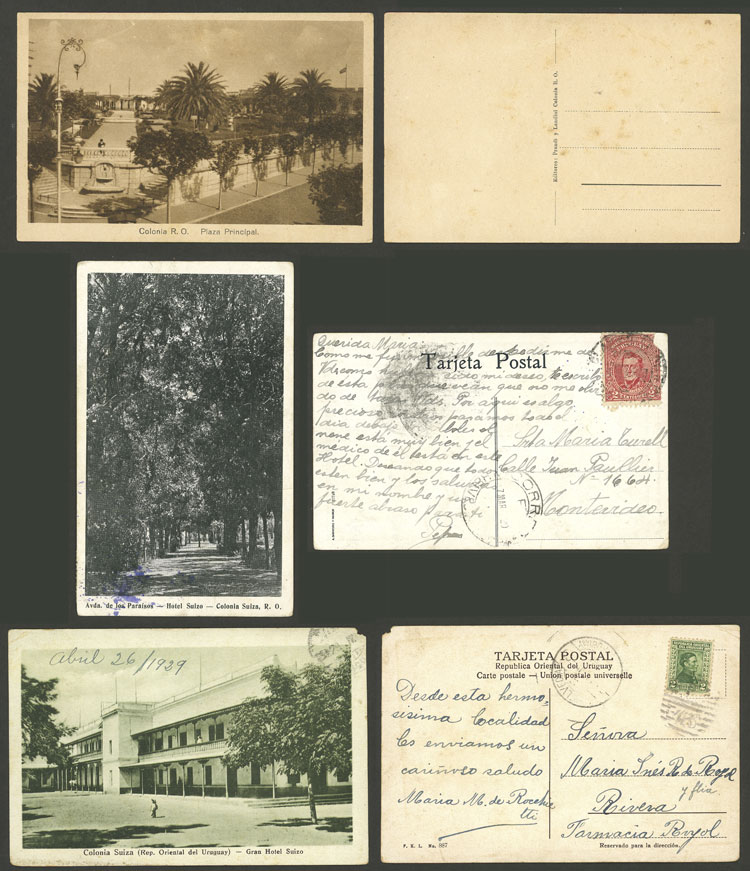 Colonia R. O. Plaza Principal.
Editores: Prandi y Landini Colonia R. O.
Avda. de los Paraísos — Hotel Suizo — Colonia Suiza, R. O.
Tarjeta Postal
Querida Maria
Como me fui sin de
Vds como mi deseo, te escribo
de esta para que vean que no me olvi
do de Vds. Por aqui es algo
precioso pasamos todo el
dia debajo arboles el
nene está muy bien y el
médico de el esta en este
Hotel. Deseando que todos
esten bien y los saluda
en mi nombre y un
fuerte abraso para ti
Pepa
Srta Maria Turell
Calle Juan Paullier
No 1664
Montevideo
Abril 26/1929
Colonia Suiza (Rep. Oriental del Uruguay) — Gran Hotel Suizo
TARJETA POSTAL
Republica Oriental del Uruguay
Carte postale — Union postale universelle
Desde esta hermo-
sisima localidad
les enviamos un
cariñoso saludo
Maria M. de
Señora
Maria Inés R. de Royol
y flia
Rivera
Farmacia Royol
F. K. L. No. 887
Reservado para la dirección.